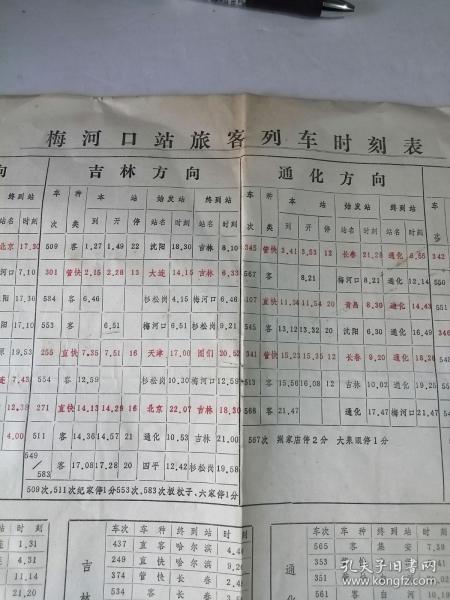 梅河口站旅客列车时刻表
吉林方向
通化方向
终到站 车 种 本 站 始发站 终到站 车 种 本 站 始发站 终到站 车
站名 时刻 次 类 到 开 停 站名 时刻 站名 时刻 次 类 到 开 停 站名 时刻 站名 时刻 次
北京 17.30 509 客 1.27 1.49 22 沈阳 18.30 吉林 8.10 345 管快 3.41 3.53 12 长春 21.28 通化 342
河口 7.10 301 管快 2.15 2.28 13 大连 14.15 吉林 6.33 567 客 8.21 梅河口 8.21 通化 12.14 550
17.30 584 客 6.46 杉松岗 4.15 梅河口 6.46 107 直快 11.34 11.54 20 8.30 通化 14.43
阳 17.10 553 客 6.51 梅河口 6.51 杉松岗 9.21 545 客 13.12 13.32 20 沈阳 6.30 通化 16.49 346
19.53 255 直快 7.35 7.51 16 天津 17.00 图们 20.52 341 管快 15.23 15.35 12 长春 9.20 通化 18.26
7.43 554 客 12.59 杉松岗 10.30 梅河口 12.59 513 客 15.56 16.08 12 吉林 10.02 通化 19.25
12.38 271 直快 14.13 14.29 16 北京 22.07 吉林 18.30 568 客 21.47 通化 17.47 梅河口 21.47
4.00 511 客 14.36 14.57 21 通化 10.53 吉林 21.00
549/583 客 17.08 17.28 20 四平 12.42 杉松岗 19.58
567次 停2分 停1分
509次,511次纪家停1分553次、583次板杖子、六家停1分
站 时刻
1.31
4.31
11.14
21.20
吉林
车次 车种 终到站 时刻
437 直客 哈尔滨
249 直快 哈尔滨
374 管快 长春
568 客 长春
通
车次 车种 终到站 时刻
565 客 集安 7.39
353
351
561 客 白河
孔夫子旧书网